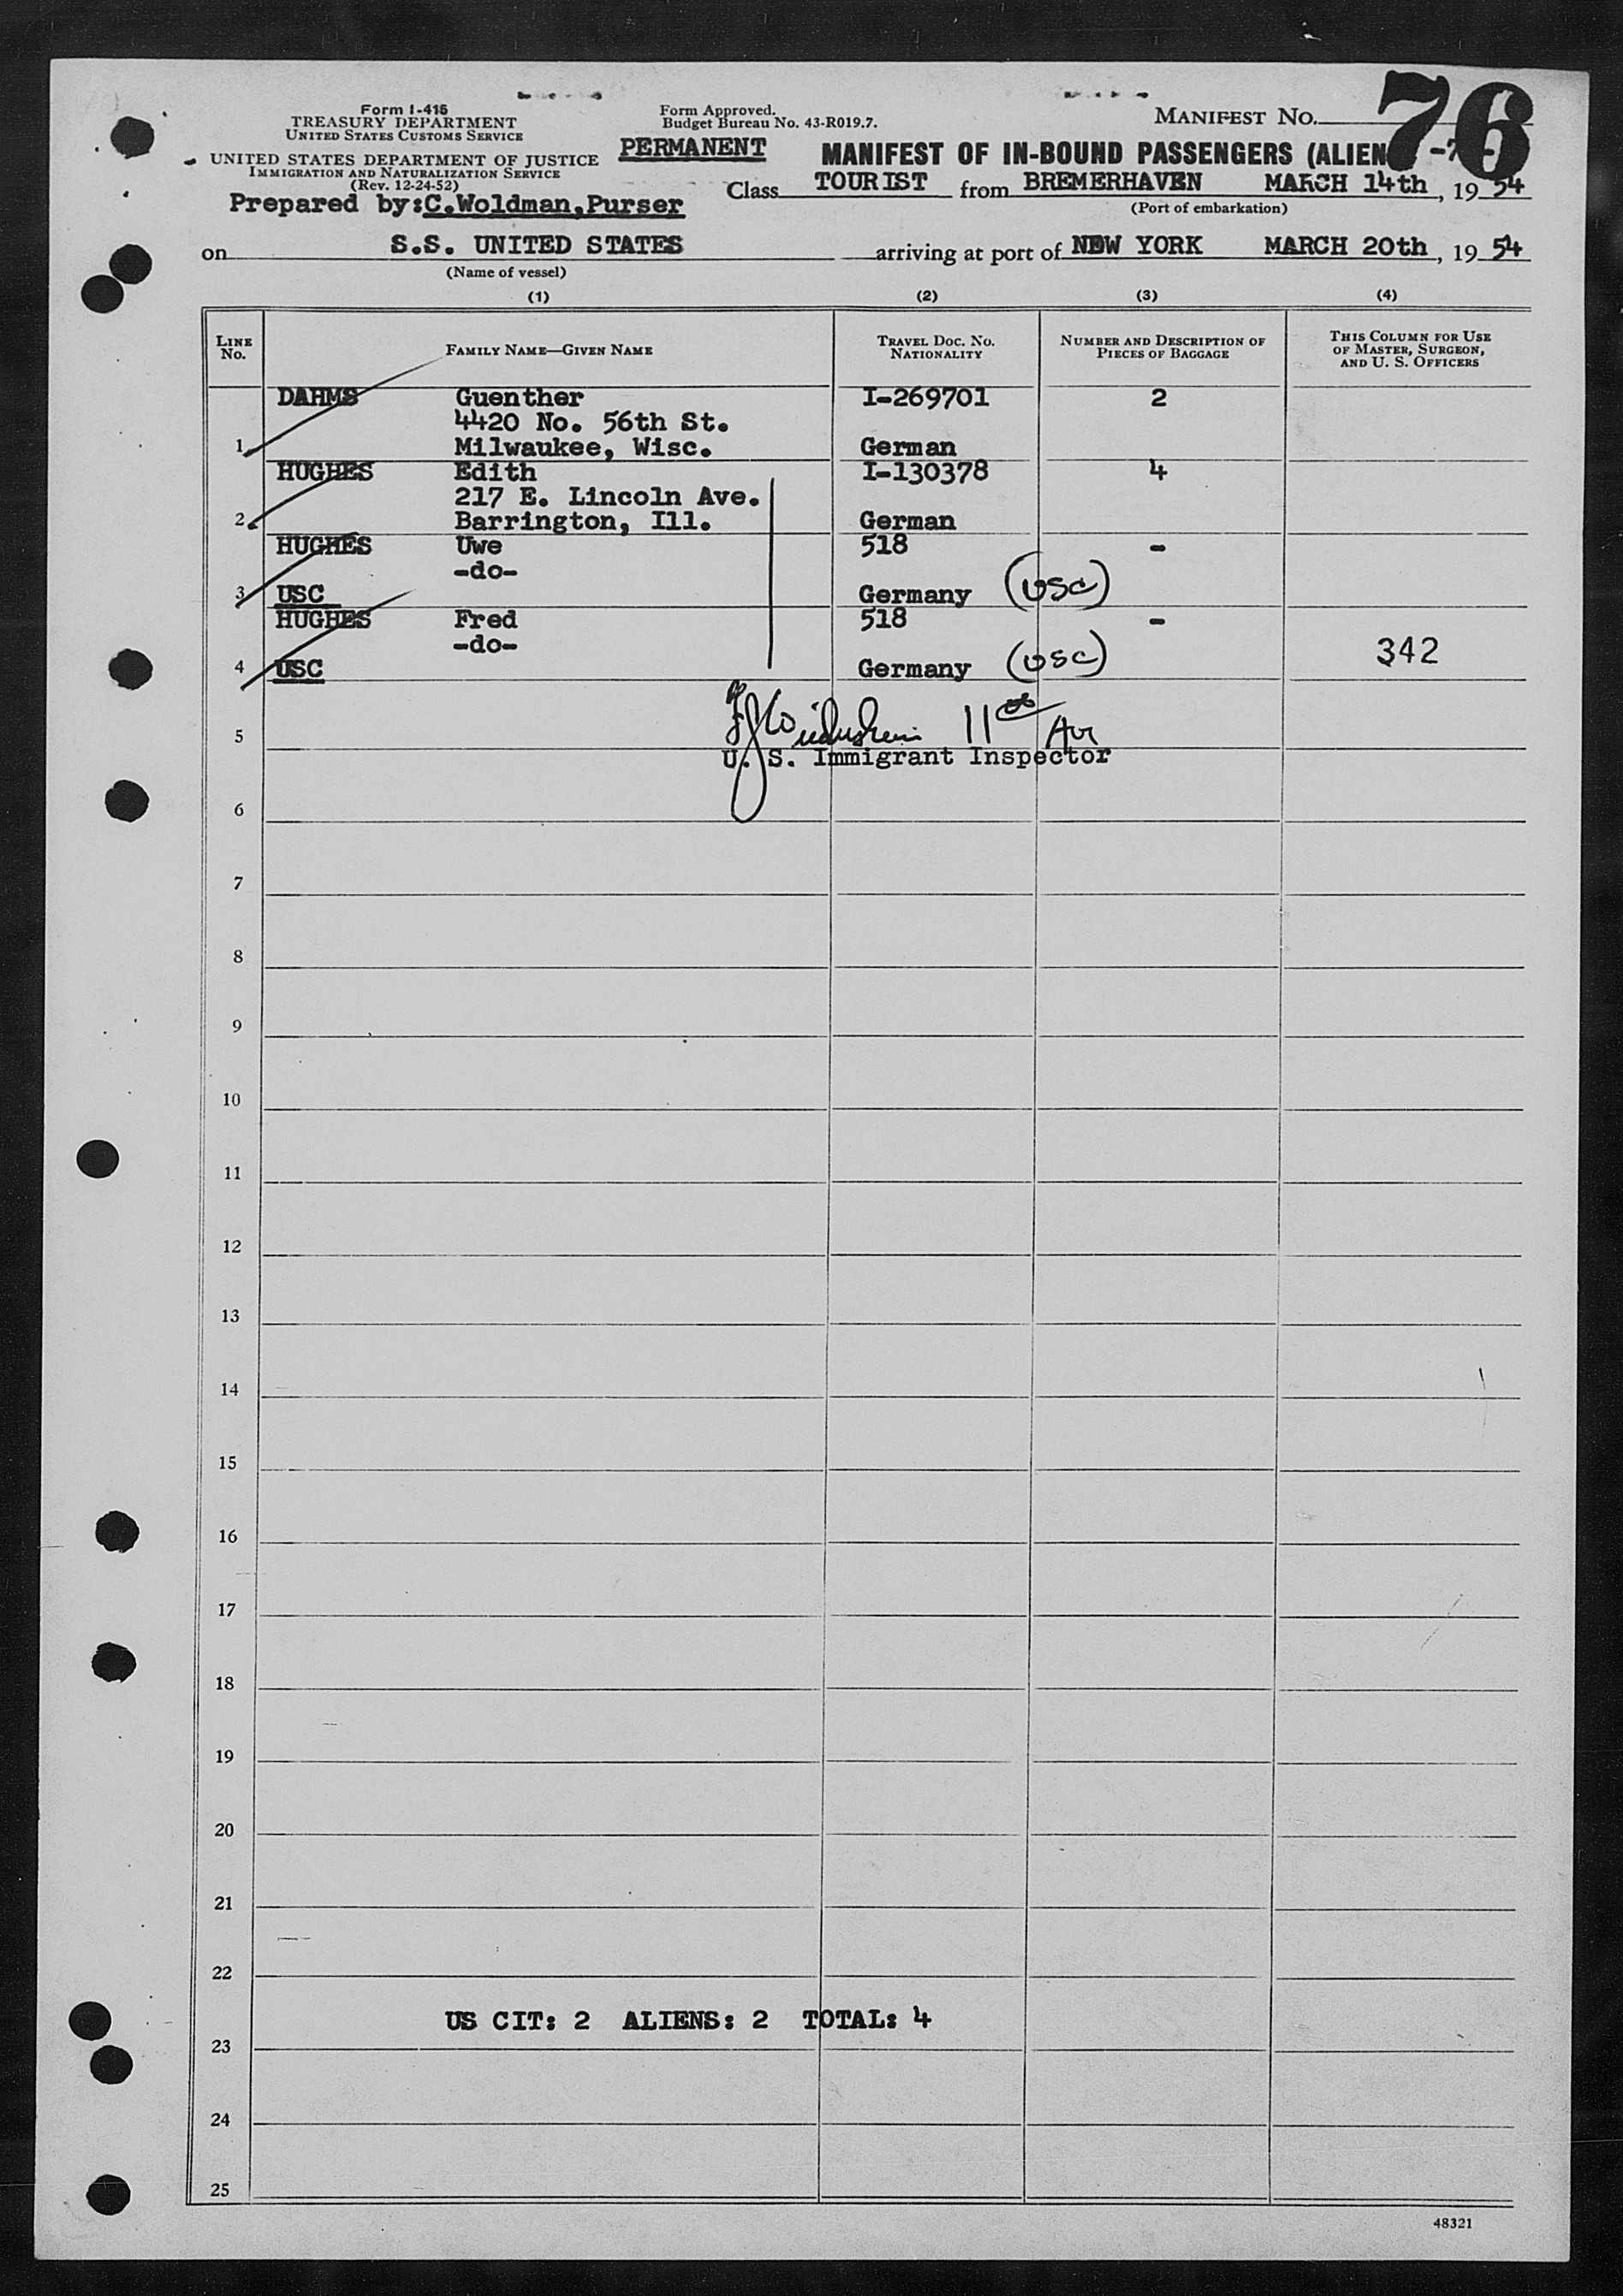 Form I-415
TREASURY DEPARTMENT
UNITED STATES CUSTOMS SERVICE
UNITED STATES DEPARTMENT OF JUSTICE
IMMIGRATION AND NATURALIZATION SERVICE
(Rev. 12-24-52)
Prepared by:C.Woldman,Purser
Form Approved.
Budget Bureau No. 43-R019.7.
PERMANENT
MANIFEST NO. 76
MANIFEST OF IN-BOUND PASSENGERS (ALIEN
Class TOURIST from BREMERHAVEN MARCH 14th, 1954
(Port of embarkation)
on S.S. UNITED STATES arriving at port of NEW YORK MARCH 20th, 1954
(Name of vessel)
(1) (2) (3) (4)
LINE No. FAMILY NAME—GIVEN NAME TRAVEL DOC. NO. NATIONALITY NUMBER AND DESCRIPTION OF PIECES OF BAGGAGE THIS COLUMN FOR USE OF MASTER, SURGEON, AND U. S. OFFICERS
DAHMS Guenther I-269701 2
4420 No. 56th St.
1 Milwaukee, Wisc. German
HUGHES Edith I-130378 4
217 E. Lincoln Ave.
2 Barrington, Ill. German
HUGHES Uwe 518 -
-do-
3 USC Germany (USC)
HUGHES Fred 518 -
-do-
4 USC Germany (USC) 342
5
U. S. Immigrant Inspector
6
7
8
9
10
11
12
13
14
15
16
17
18
19
20
21
22
US CIT: 2 ALIENS: 2 TOTAL: 4
23
24
25
48321